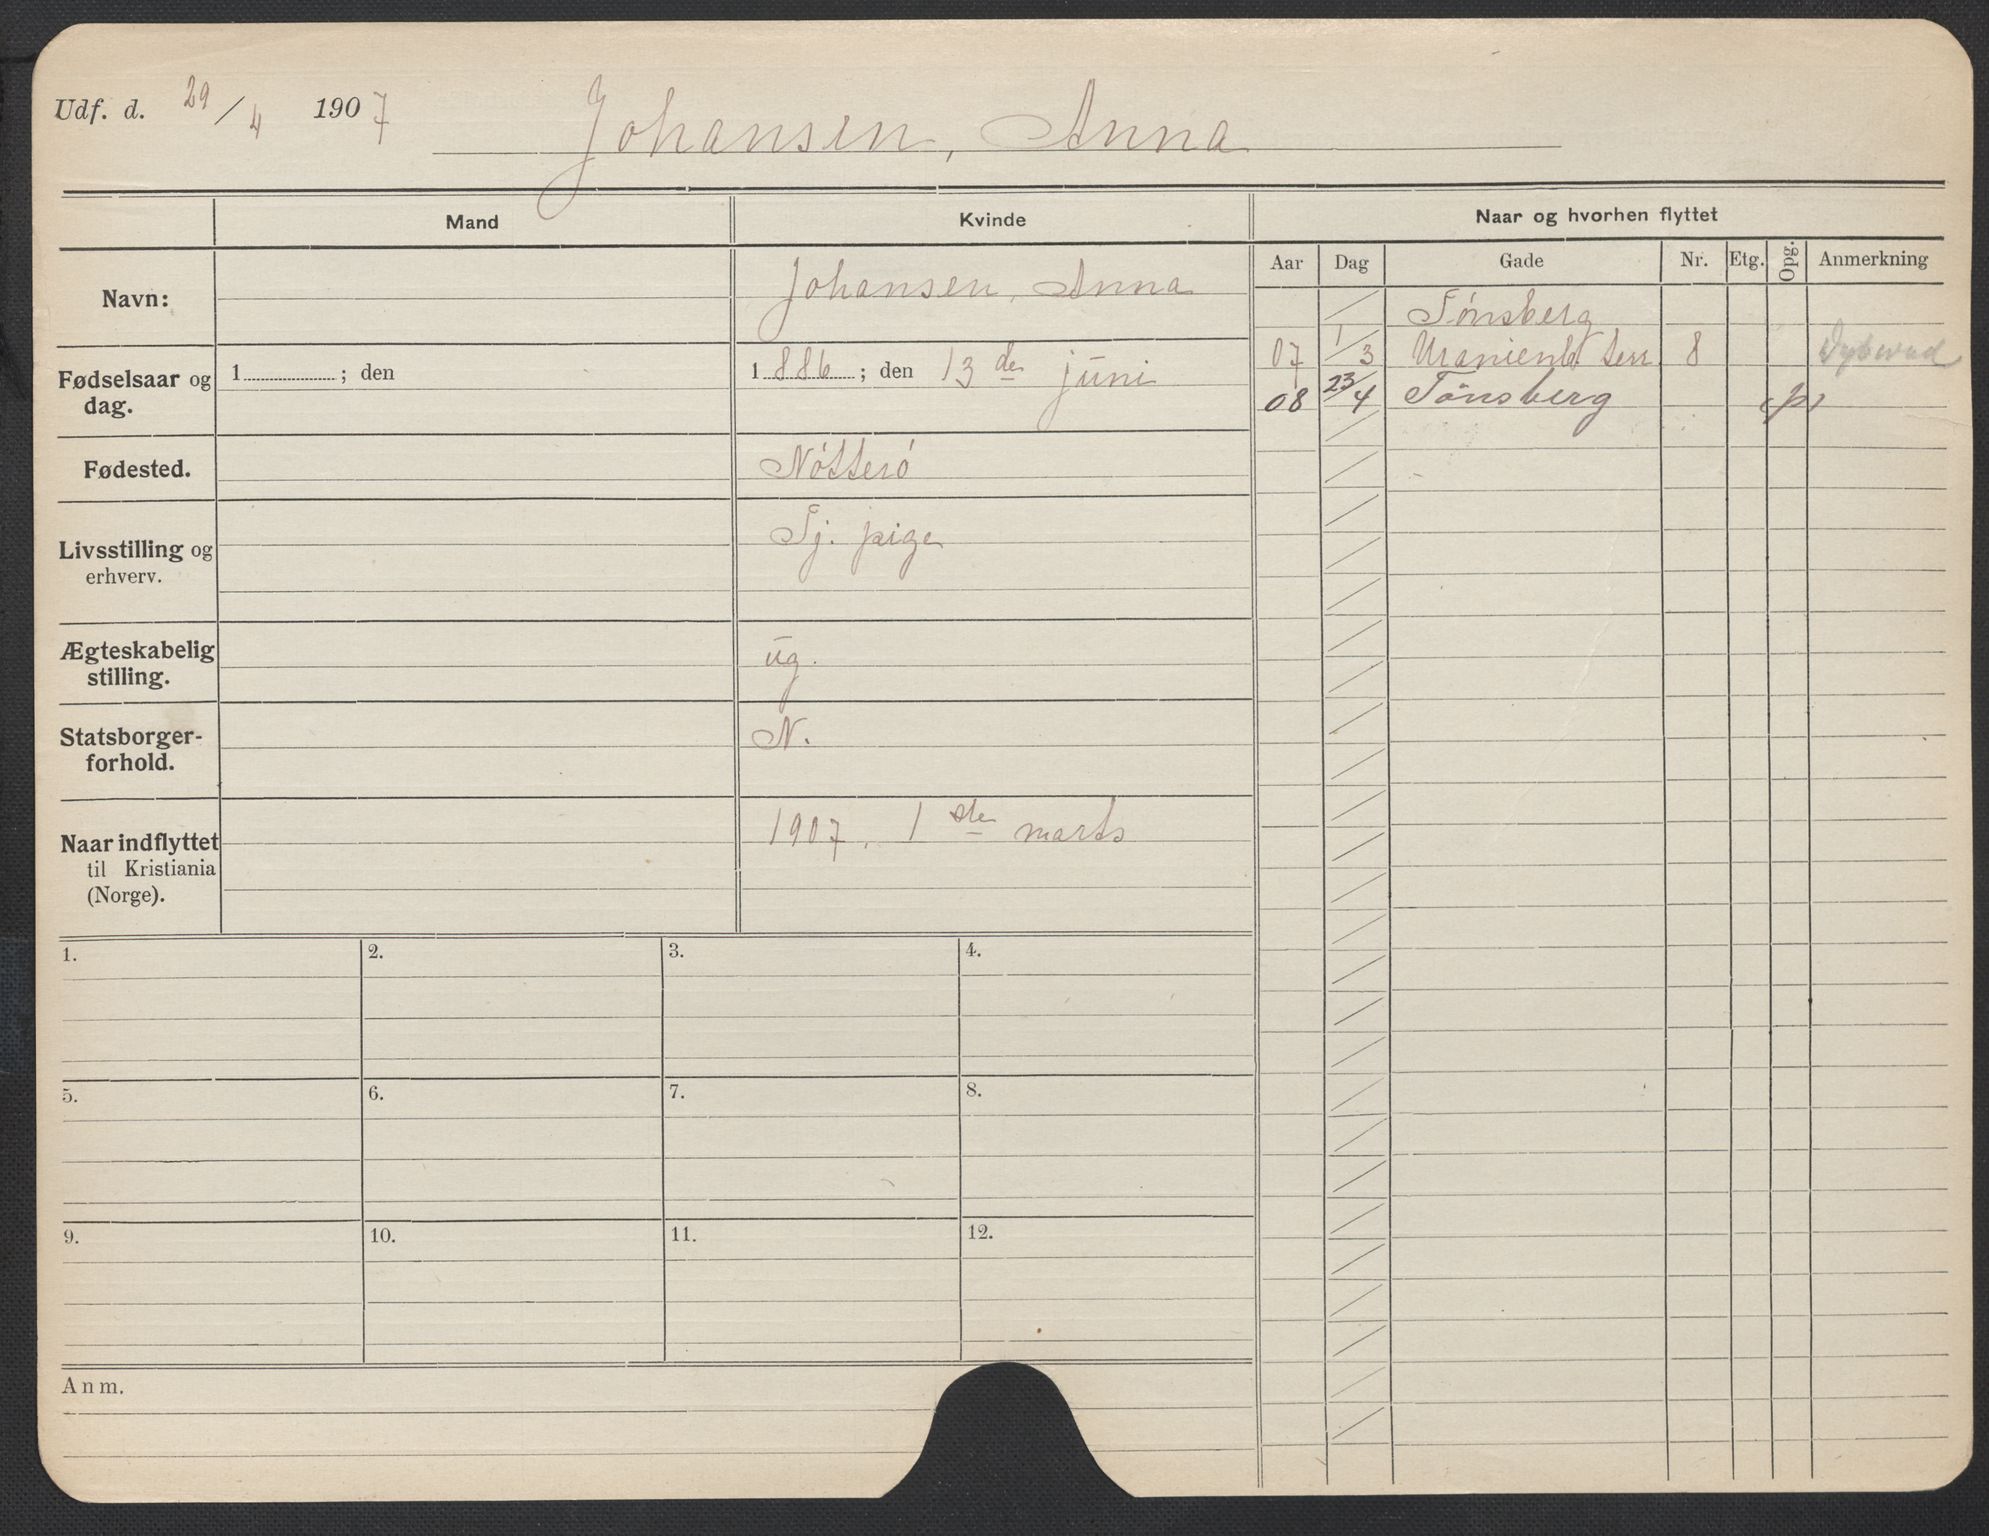 Udf. d. 29/4 1907 Johansen, Anna
Mand Kvinde Naar og hvorhen flyttet
Aar Dag Gade Nr. Etg. Opg. Anmerkning
Navn: Johansen, Anna
Fødselsaar og dag. 1 ; den 1886 ; den 13de juni
Fødested. Nótteró
Livsstilling og erhverv. Tj. pige
Ægteskabelig stilling. ug.
Statsborgerforhold. N.
Naar indflyttet til Kristiania (Norge). 1907, 1ste marts
Tónsberg
07 1/3 Uranienb. terr. 8 Dybwad
08 23/4 Tönsberg
1. 2. 3. 4.
5. 6. 7. 8.
9. 10. 11. 12.
Anm.